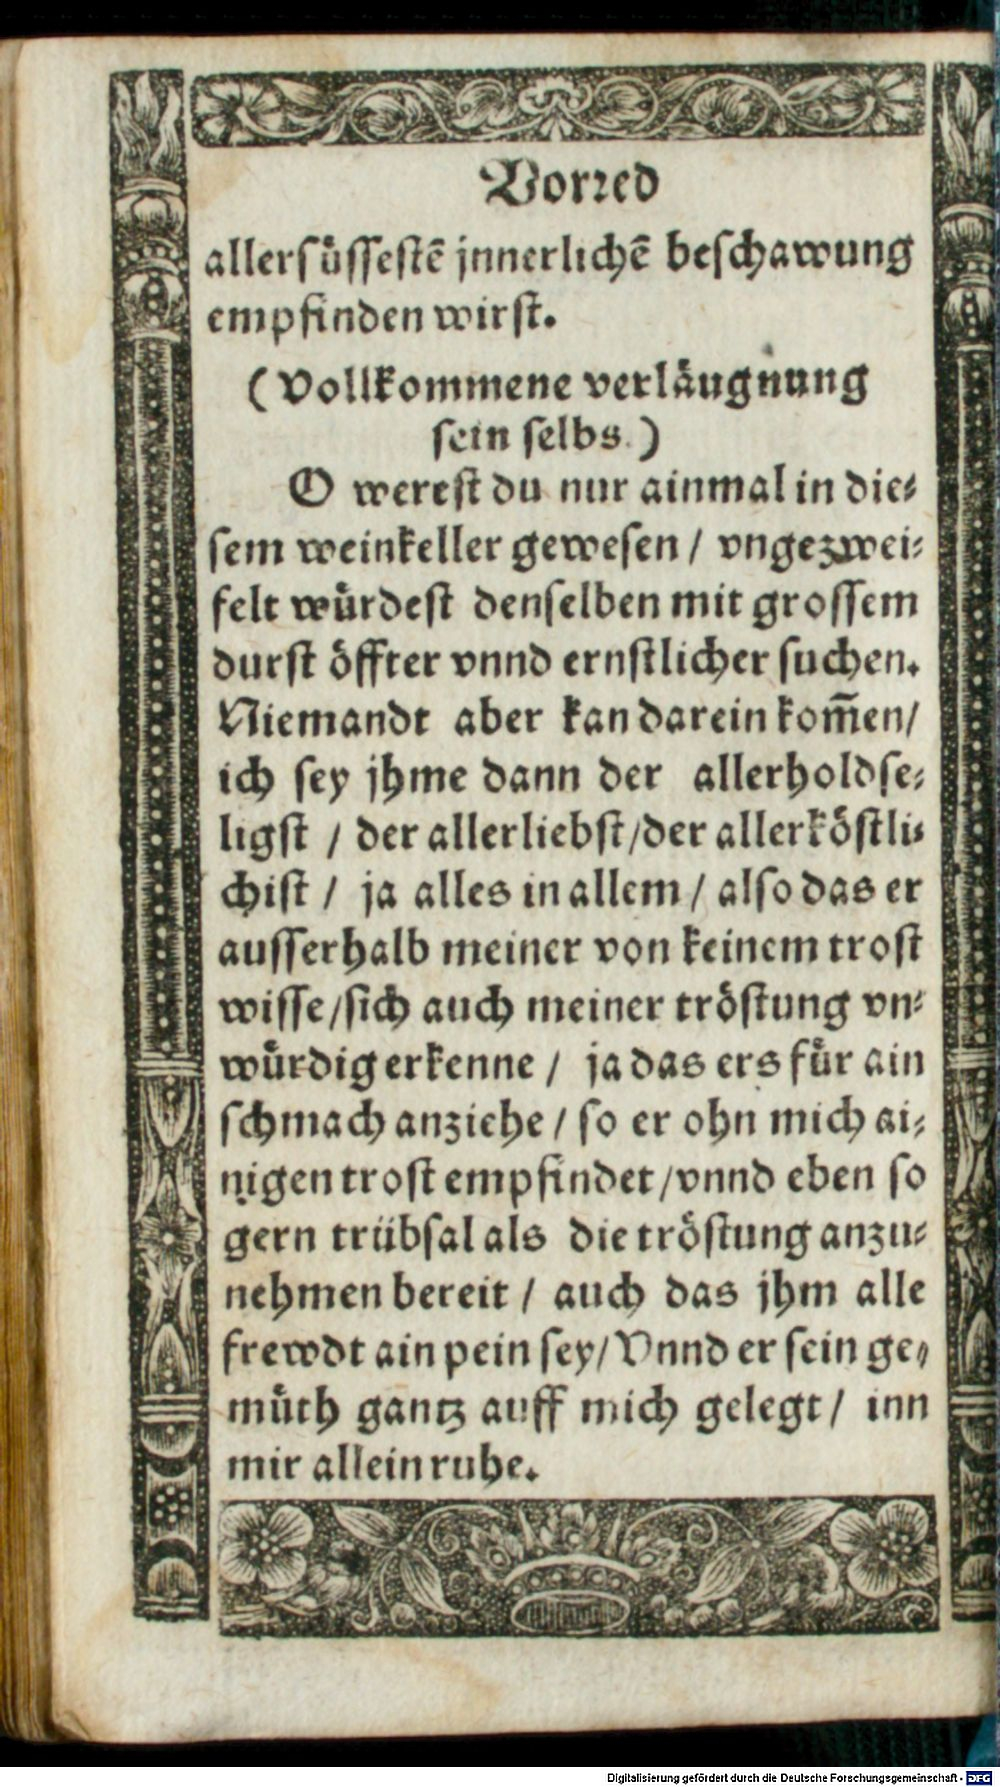 Vorꝛed
allersuͤssestẽ jnnerlichẽ beschawung
empfinden wirst.
(Vollkommene verlaͤugnung
sein selbs.)
O werest du nur ainmal in die⸗
sem weinkeller gewesen / vngezwei⸗
felt wuͤrdest denselben mit grossem
durst oͤffter vnnd ernstlicher suchen.
Niemandt aber kan darein kom̃en/
ich sey jhme dann der allerholdse⸗
ligst / der allerliebst/der allerkoͤstli⸗
chist / ja alles in allem / also das er
ausserhalb meiner von keinem trost
wisse/sich auch meiner troͤstung vn⸗
wuͤrdig erkenne / ja das ers fuͤr ain
schmach anziehe / so er ohn mich ai⸗
nigen trost empfindet /vnnd eben so
gern truͤbsal als die troͤstung anzu⸗
nehmen bereit / auch das jhm alle
frewdt ain pein sey/ Vnnd er sein ge⸗
muͤth gantz auff mich gelegt / inn
mir allein ruhe.
Digitalisierung gefördert durch die Deutsche Forschungsgemeinschaft - DFG